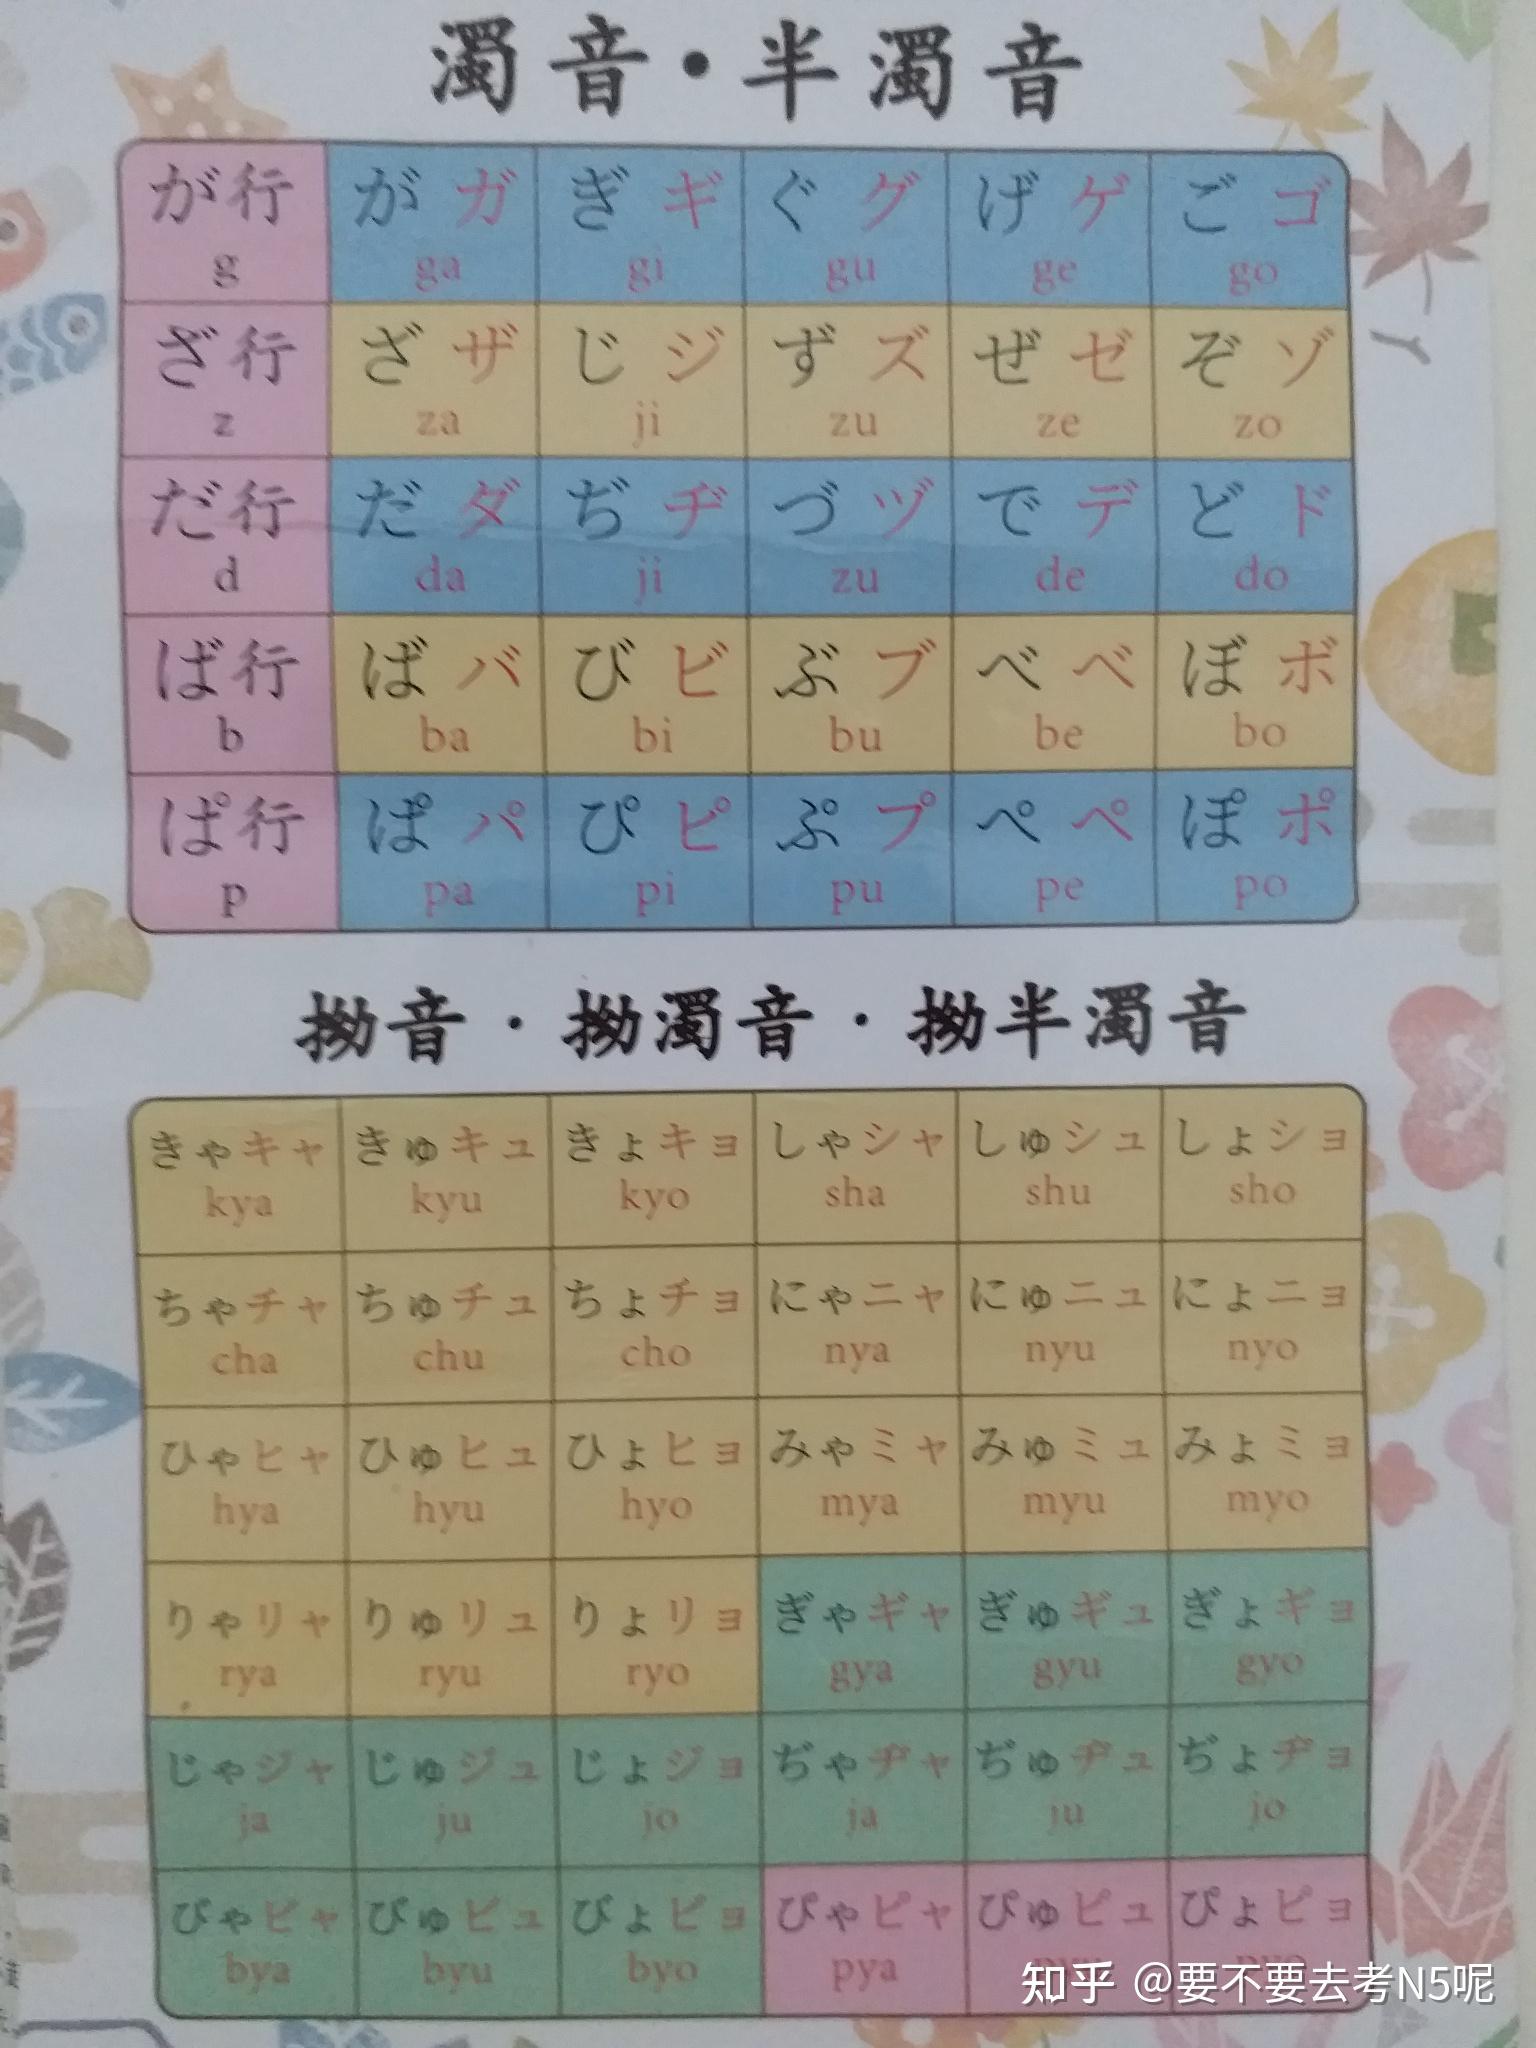 濁音・半濁音
が行 がガ ぎギ ぐグ げゲ ごゴ
g ga gi gu ge go
ざ行 ざザ じジ ずズ ぜゼ ぞゾ
z za ji zu ze zo
だ行 だダ ぢヂ づヅ でデ どド
d da ji zu de do
ば行 ばバ びビ ぶブ べベ ぼボ
b ba bi bu be bo
ぱ行 ぱパ ぴピ ぷプ ぺペ ぽポ
p pa pi pu pe po
拗音・拗濁音・拗半濁音
きゃキャ きゅキュ きょキョ しゃシャ しゅシュ しょショ
kya kyu kyo sha shu sho
ちゃチャ ちゅチュ ちょチョ にゃニャ にゅニュ にょニョ
cha chu cho nya nyu nyo
ひゃヒャ ひゅヒュ ひょヒョ みゃミャ みゅミュ みょミョ
hya hyu hyo mya myu myo
りゃリャ りゅリュ りょリョ ぎゃギャ ぎゅギュ ぎょギョ
rya ryu ryo gya gyu gyo
じゃジャ じゅジュ じょジョ ぢゃヂャ ぢゅヂュ ぢょヂョ
ja ju jo ja ju jo
びゃビャ びゅビュ びょビョ ぴゃピャ ぴゅピュ ぴょピョ
bya byu byo pya pyu pyo
知乎 @要不要去考N5呢